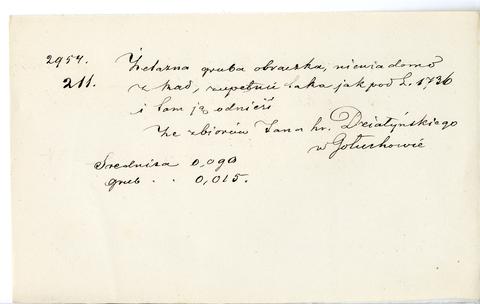 2954. Żelazna gruba obrączka, niewiadomo
211. z kąd, zupełnie taka jak pod L. 1736
i tam ją odnieść
Ze zbiorów Jana hr. Działyńskiego
w Gołuchowie
Średnica 0,090
grub . . 0,015.